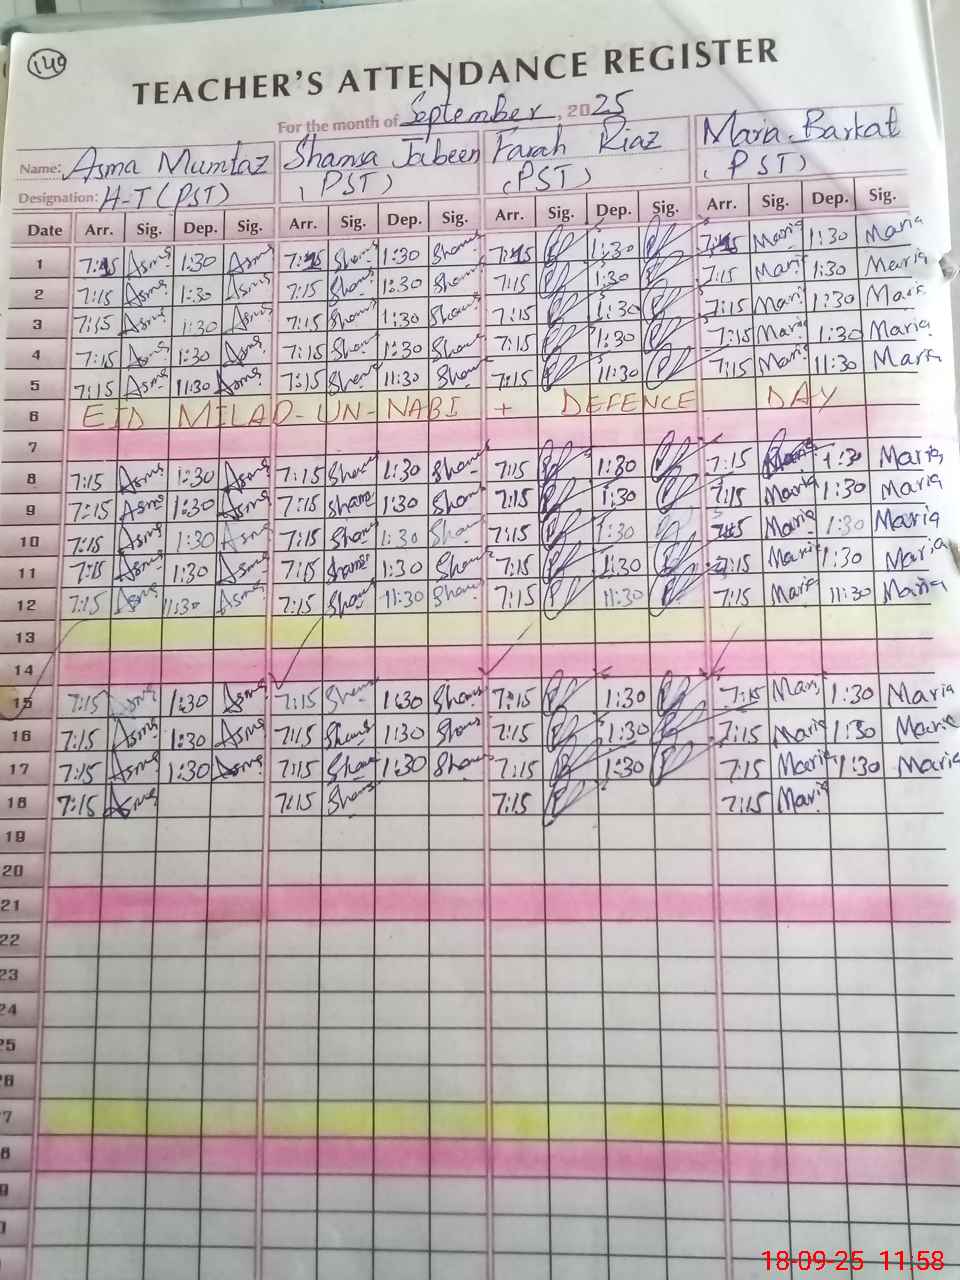 140
TEACHER'S ATTENDANCE REGISTER
For the month of September, 2025
Name: Asma Mumtaz Shamsa Jabeen Farah Riaz Maria Barkat
Designation: H-T (PST) (PST) (PST) (PST)
Date Arr. Sig. Dep. Sig. Arr. Sig. Dep. Sig. Arr. Sig. Dep. Sig. Arr. Sig. Dep. Sig.
1 7:15 Asma 1:30 Asma 7:15 Sham 1:30 Sham 7:15 1:30 7:15 Maria 1:30 Maria
2 7:15 Asma 1:30 Asma 7:15 Sham 1:30 Sham 7:15 1:30 7:15 Maria 1:30 Maria
3 7:15 Asma 1:30 Asma 7:15 Sham 1:30 Sham 7:15 1:30 7:15 Maria 1:30 Maria
4 7:15 Asma 1:30 Asma 7:15 Sham 1:30 Sham 7:15 1:30 7:15 Maria 1:30 Maria
5 7:15 Asma 11:30 Asma 7:15 Sham 11:30 Sham 7:15 11:30 7:15 Maria 11:30 Maria
6 EID MILAD-UN-NABI + DEFENCE DAY
7
8 7:15 Asma 1:30 Asma 7:15 Sham 1:30 Sham 7:15 1:30 7:15 Maria 1:30 Maria
9 7:15 Asma 1:30 Asma 7:15 Sham 1:30 Sham 7:15 1:30 7:15 Maria 1:30 Maria
10 7:15 Asma 1:30 Asma 7:15 Sham 1:30 Sham 7:15 1:30 7:15 Maria 1:30 Maria
11 7:15 Asma 1:30 Asma 7:15 Sham 1:30 Sham 7:15 1:30 7:15 Maria 1:30 Maria
12 7:15 Asma 11:30 Asma 7:15 Sham 11:30 Sham 7:15 11:30 7:15 Maria 11:30 Maria
13
14
15 7:15 Asma 1:30 Asma 7:15 Sham 1:30 Sham 7:15 1:30 7:15 Maria 1:30 Maria
16 7:15 Asma 1:30 Asma 7:15 Sham 1:30 Sham 7:15 1:30 7:15 Maria 1:30 Maria
17 7:15 Asma 1:30 Asma 7:15 Sham 1:30 Sham 7:15 1:30 7:15 Maria 1:30 Maria
18 7:15 Asma 7:15 Sham 7:15 7:15 Maria
19
20
21
22
23
24
25
26
7
8
9
18-09-25 11:58